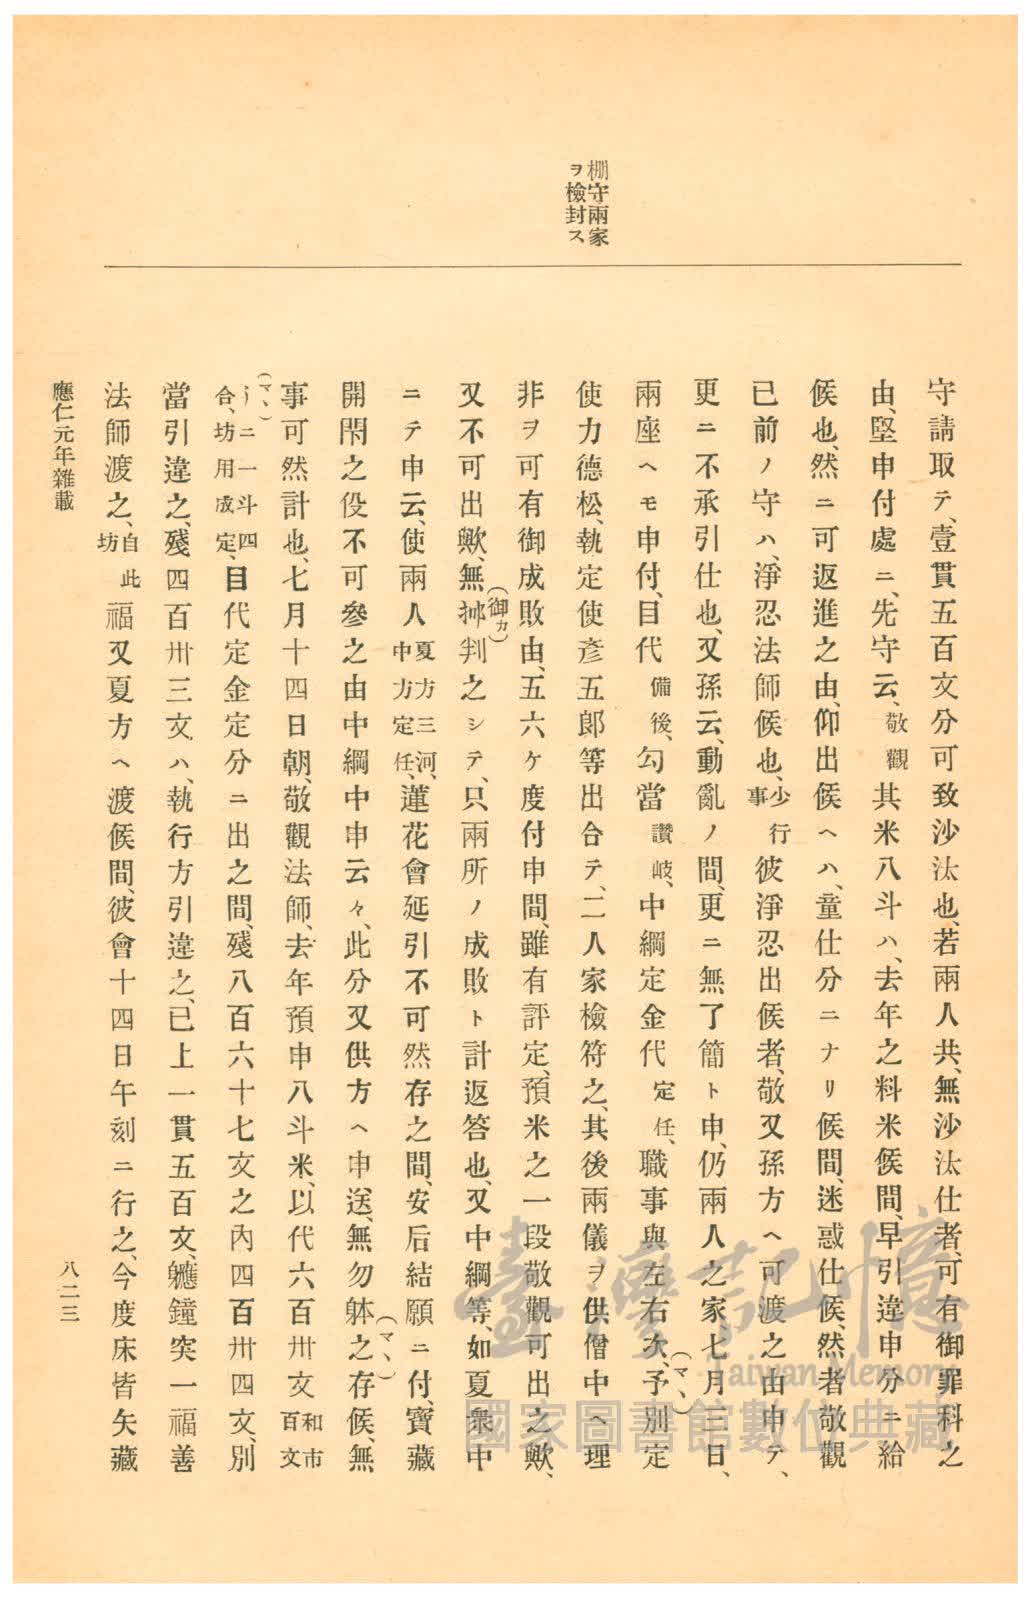 棚守兩家
ヲ檢封ス
守請取テ、壹貫五百文分可致沙汰也、若兩人共、無沙汰仕者、可有御罪科之
由、堅申付處ニ、先守云、敬觀其米八斗ハ、去年之料米候間、早引違申分ニ給
候也、然ニ可返進之由、仰出候ヘハ、童仕分ニナリ候間、迷惑仕候、然者敬觀
已前ノ守ハ、淨忍法師候也、少行事彼淨忍出候者、敬又孫方ヘ可渡之由申テ、
更ニ不承引仕也、又孫云、動亂ノ間、更ニ無了簡ト申、仍兩人之家、七月三日、
兩座ヘモ申付、目代備後、勾當讚岐、中綱定金代定任、職事與左右次、予別定(マヽ)
使力德松、執定使彥五郎等出合テ、二人家檢符之、其後兩儀ヲ供僧中ヘ理
非ヲ可有御成敗由、五六ケ度付申間、雖有評定、預米之一段敬觀可出之歟、
又不可出歟、無抻判之シテ、只兩所ノ成敗ト計返答也、又中綱等、如夏衆中(御カ)
ニテ申云、使兩人夏方三河、中方定任、蓮花會延引不可然存之間、安后結願ニ付、寶藏
開閇之役不可參之由中綱中申云々、此分又供方ヘ申送、無勿躰之存候、無(マヽ)
事可然計也、七月十四日朝、敬觀法師、去年預申八斗米、以代六百卅文和市百文
合、坊用成定、目代定金定分ニ出之間、殘八百六十七文之內四百卅四文、別
(マヽ)
ニ一斗四
當引違之、殘四百卅三文ハ、執行方引違之、已上一貫五百文、軈鐘突一福善
法師渡之、自坊此福又夏方ヘ渡候間、彼會十四日午刻ニ行之、今度床皆矢藏
應仁元年雜載
八二三
臺灣記憶
Taiwan Memory
國家圖書館數位典藏